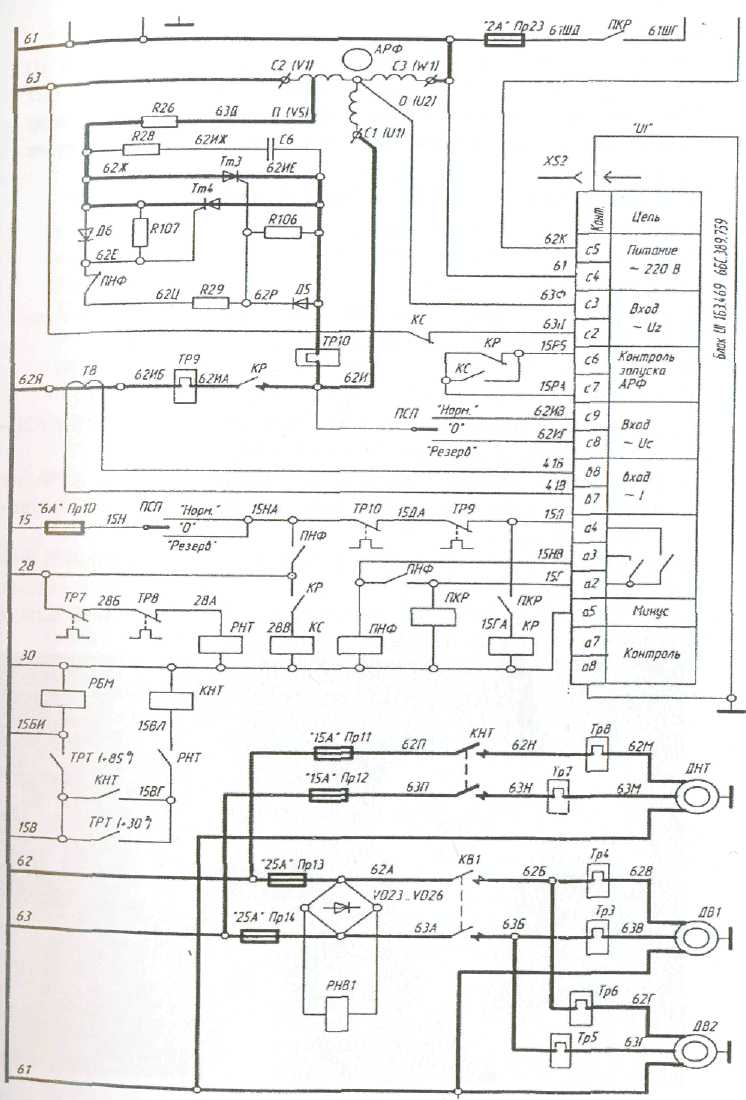 61
"2А" Пр23
61ШД
ПКР
61ШГ
АРФ
63
С2 (V1)
С3 (W1)
R26
63Д
П (V5)
О (U2)
R28
62ИЖ
С6
С1 (U1)
"U1"
62Ж
Тт3
62ИЕ
XS2
Тт4
Конт.
Цепь
Д6
R107
R106
62К
с5
Питание
~ 220 В
62Е
61
с4
ПНФ
63Ф
с3
Вход
~ Uг
62Ц
R29
62Р
Д5
КС
63Ц
с2
Блок U1 1БЗ.469 6БС.389.759
ТР10
КР
15Р5
с6
Контроль
запуска
АРФ
62Я
Т8
62ИБ
ТР9
62ИА
КР
62И
КС
15РА
с7
ПСП
"Норм."
62ИВ
с9
Вход
~ Uс
"0"
62ИГ
с8
"Резерв"
41Б
в8
Вход
~ I
41В
в7
"6А" Пр10
ПСП
"Норм."
15НА
ТР10
15ДА
ТР9
15Д
а4
15
15Н
"0"
"Резерв"
ПНФ
15НВ
а3
28
ПНФ
15Г
а2
ТР7
28Б
ТР8
28А
КР
ПКР
ПКР
а5
Минус
РНТ
28В
КС
ПНФ
15ГА
КР
а7
Контроль
30
а8
РБМ
КНТ
15БИ
15ВЛ
"15А" Пр11
62П
КНТ
62Н
Тр8
62М
ДНТ
ТРТ (+85°)
РНТ
"15А" Пр12
63П
63Н
Тр7
63М
КНТ
15ВГ
15В
ТРТ (+30°)
62
"25А" Пр13
62А
КВ1
62Б
Тр4
62В
VD23...VD26
ДВ1
63
"25А" Пр14
63А
63Б
Тр3
63В
РНВ1
Тр6
62Г
ДВ2
Тр5
63Г
61